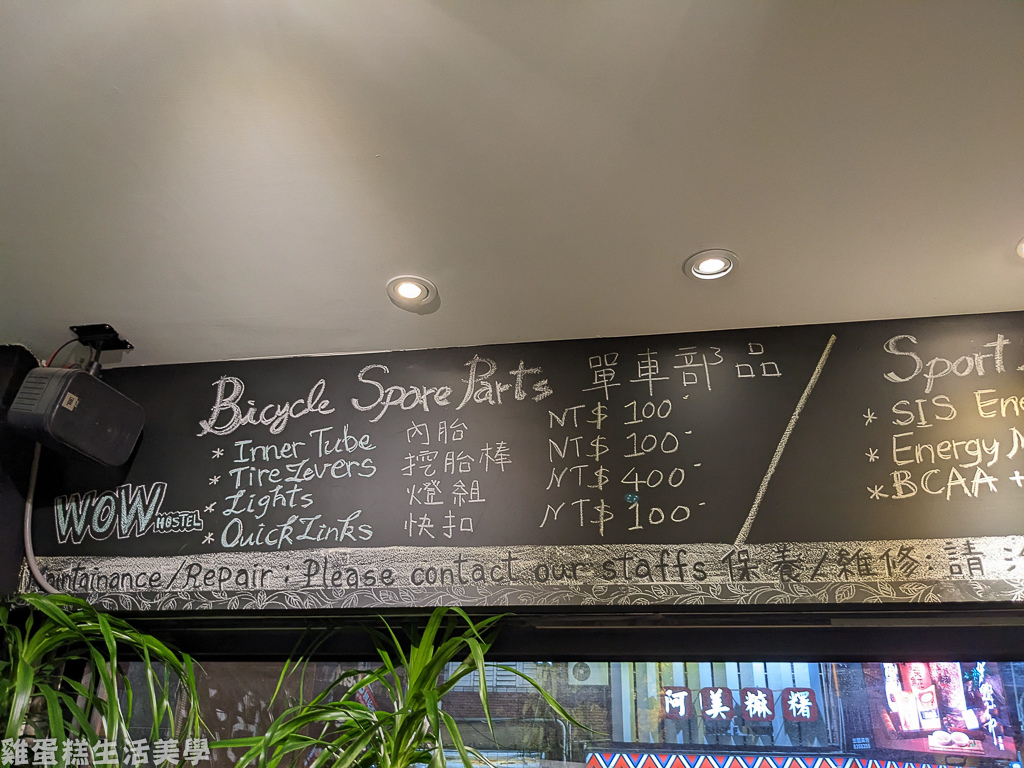 Bicycle Spare Parts 單車部品
* Inner Tube 內胎 NT$ 100-
* Tire Levers 挖胎棒 NT$ 100-
* Lights 燈組 NT$ 400-
* Quick Links 快扣 NT$ 100-
WOW HOSTEL
Sport
* SIS Ene
* Energy
* BCAA +
Maintainance/Repair: Please contact our staffs 保養/維修:請
阿美麻糬
雞蛋糕生活美學